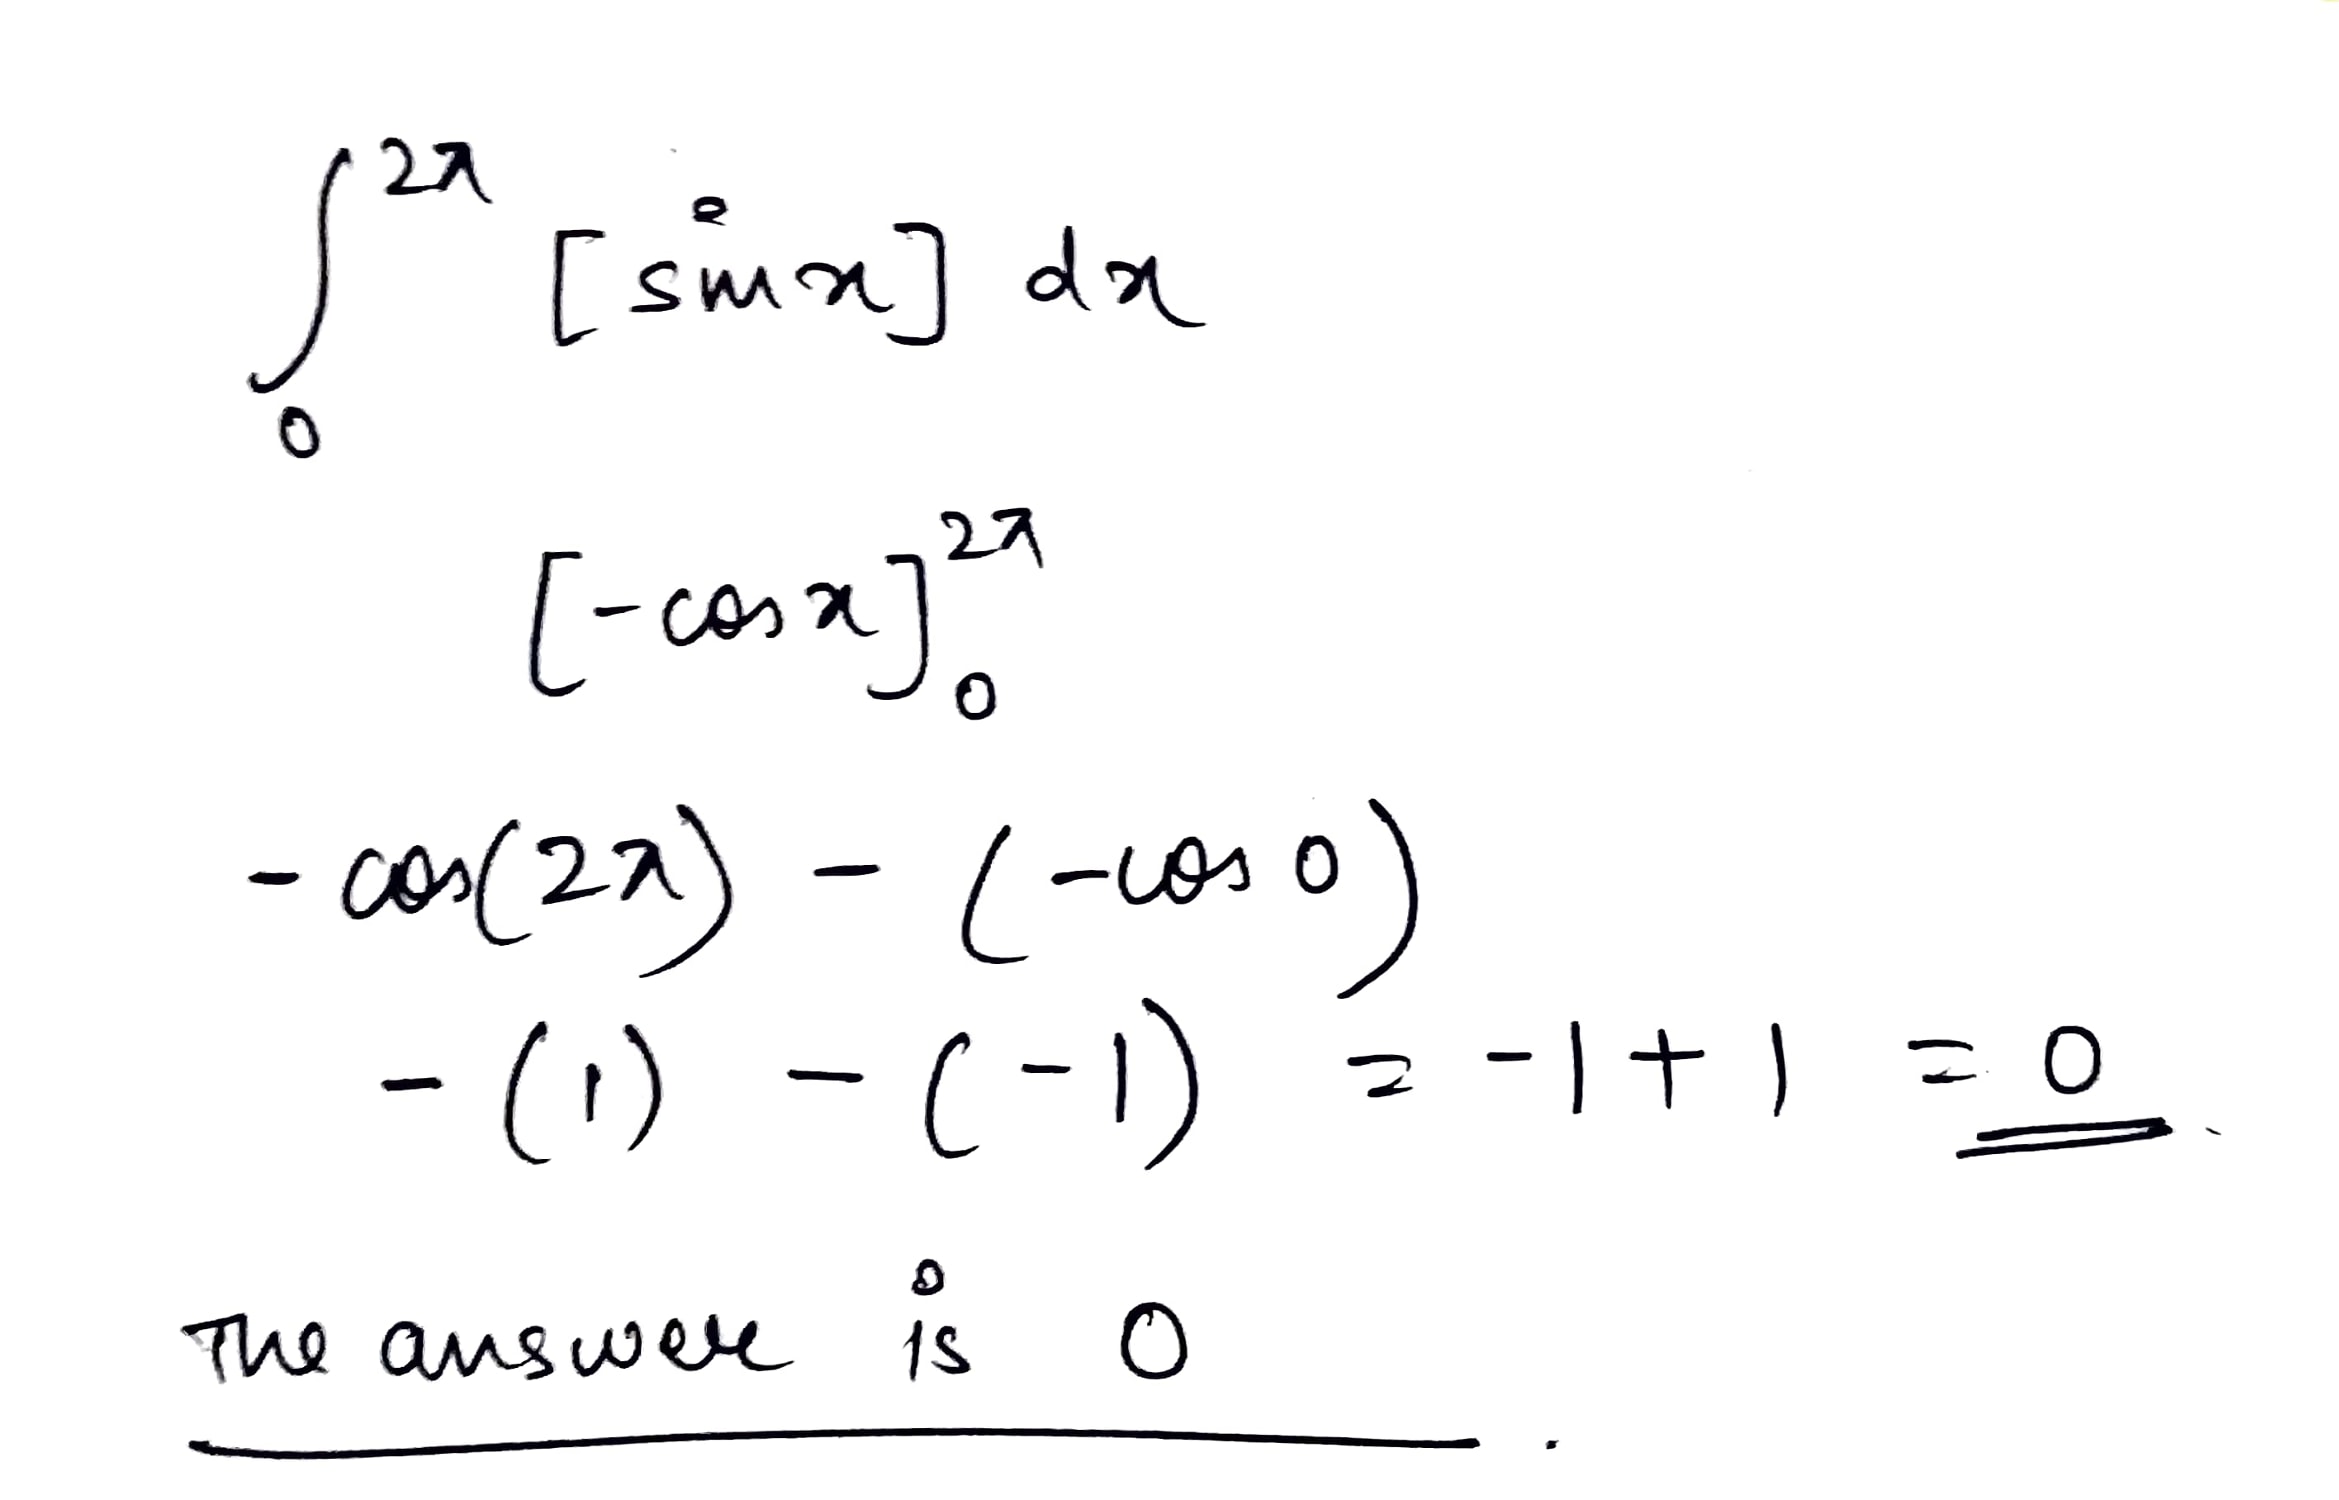 ∫₀^{2π} [sin x] dx
[-cos x]₀^{2π}
- cos(2π) - (-cos 0)
- (1) - (-1) = -1 + 1 = 0.
The answer is 0.